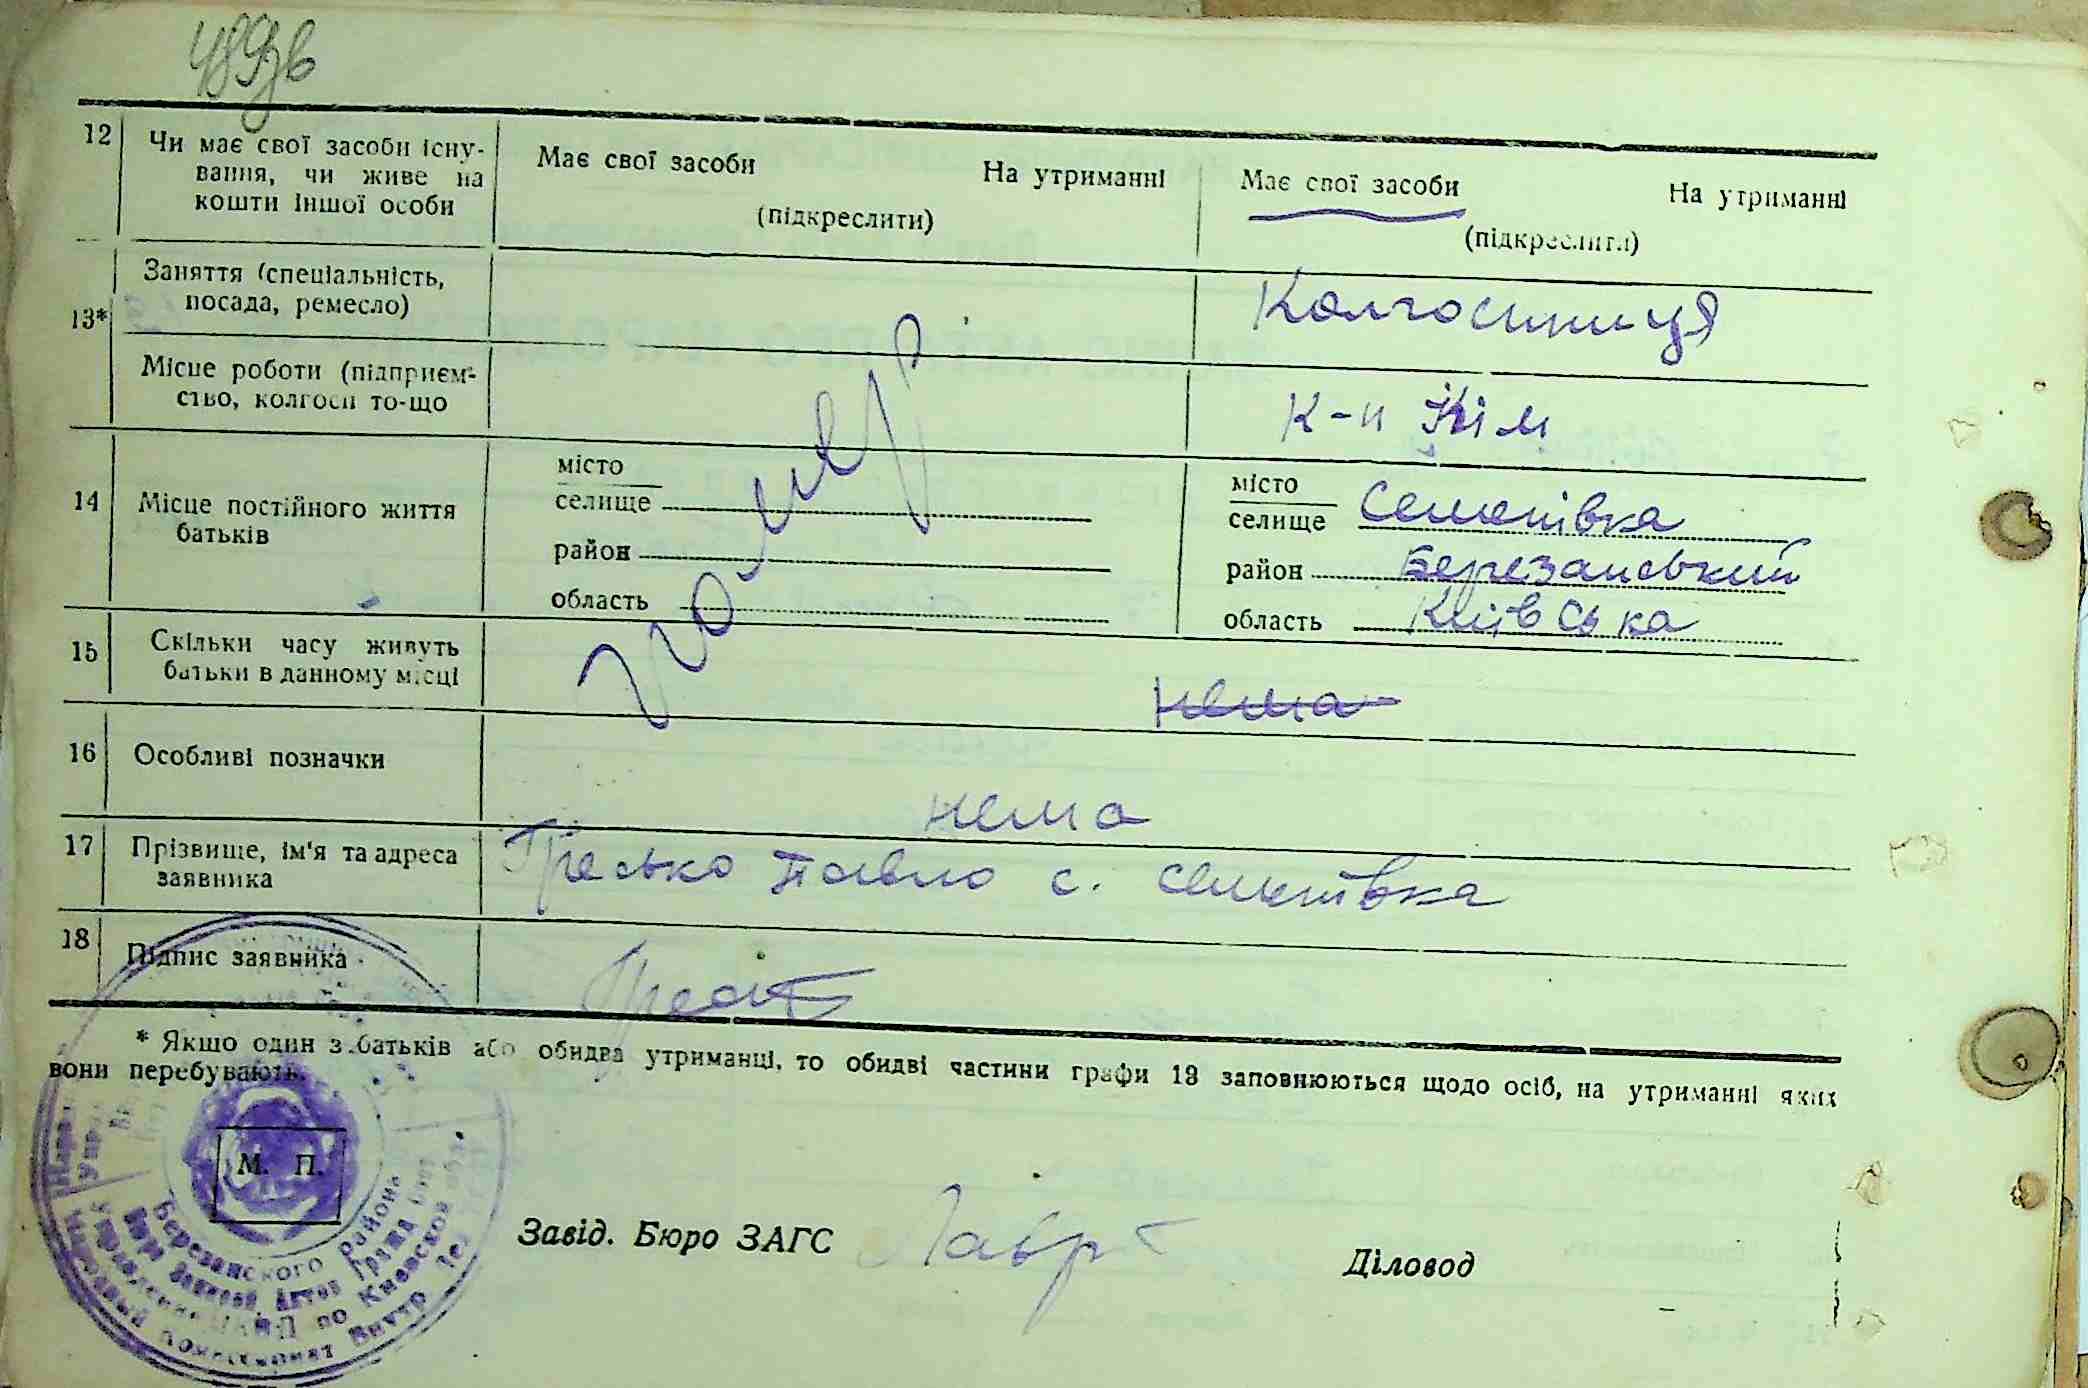 489зв
12 Чи має свої засоби існу-
вання, чи живе на
кошти іншої особи
Має свої засоби На утриманні
(підкреслити)
Має свої засоби На утриманні
(підкреслити)
13*
Заняття (спеціальність,
посада, ремесло)
Колгоспниця
Місце роботи (підприєм-
ство, колгосп то-що
К-п Кім
помер
14 Місце постійного життя
батьків
місто
селище
район
область
місто
селище Семенівка
район Березанський
область Київська
15 Скільки часу живуть
батьки в данному місці
нема
16 Особливі позначки
нема
17 Прізвище, ім'я та адреса
заявника
Гресько Павло с. Семенівка
18 Підпис заявника
* Якщо один з батьків або обидва утриманці, то обидві частини графи 13 заповнюються щодо осіб, на утриманні яких
вони перебувають.
М. П.
Березанского района
Бюро Записей Актов Гражд.
по Киевской обл.
Народный Комиссариат Внутр.
Завід. Бюро ЗАГС
Діловод